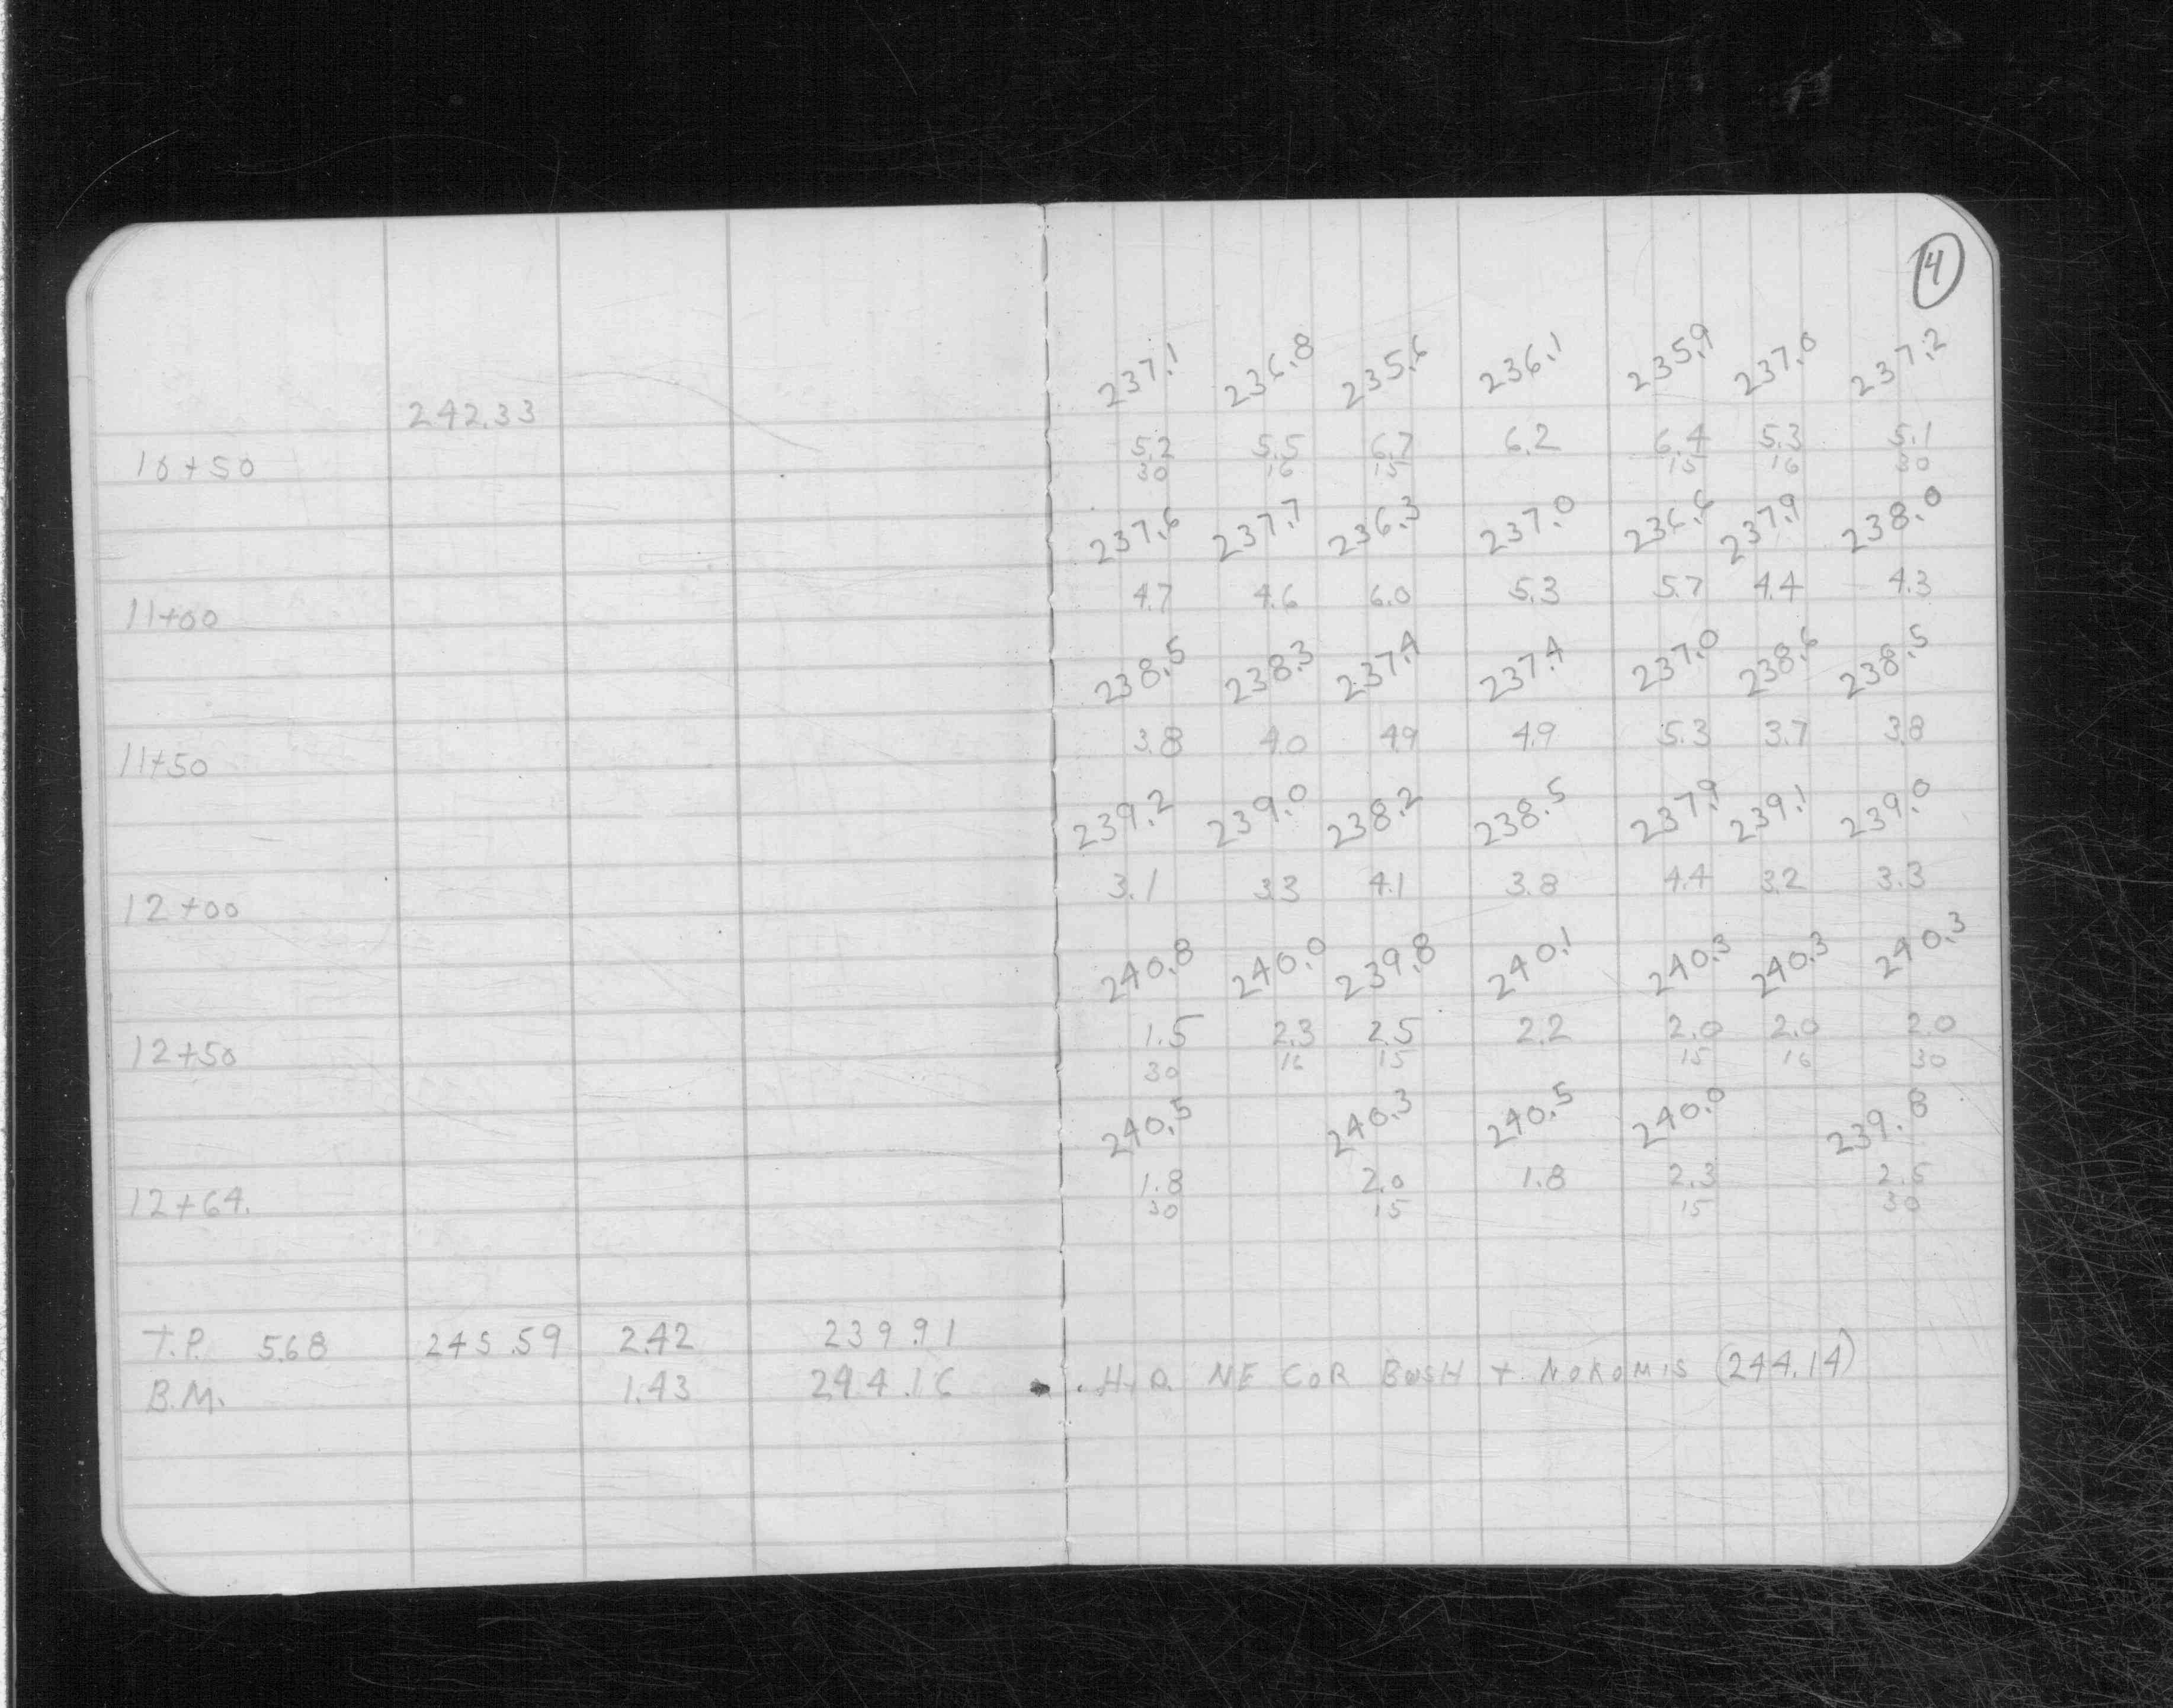 4
237.1 236.8 235.6 236.1 235.9 237.0 237.2
242.33
10+50 5.2 5.5 6.7 6.2 6.4 5.3 5.1
30 16 15 15 16 30
237.6 237.7 236.3 237.0 236.6 237.9 238.0
11+00 4.7 4.6 6.0 5.3 5.7 4.4 4.3
238.5 238.3 237.4 237.4 237.0 238.6 238.5
11+50 3.8 4.0 4.9 4.9 5.3 3.7 3.8
239.2 239.0 238.2 238.5 237.9 239.1 239.0
12+00 3.1 3.3 4.1 3.8 4.4 3.2 3.3
240.8 240.0 239.8 240.1 240.3 240.3 240.3
12+50 1.5 2.3 2.5 2.2 2.0 2.0 2.0
30 16 15 15 16 30
240.5 240.3 240.5 240.0 239.8
12+64. 1.8 2.0 1.8 2.3 2.5
30 15 15 30
T.P. 5.68 245.59 2.42 239.91
B.M. 1.43 244.16 NE COR BUSH + NOKOMIS (244.14)